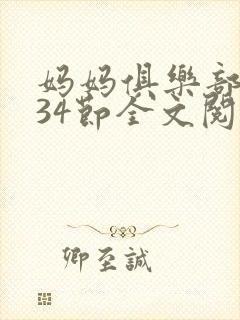 妈妈俱樂部
34節全文閱
卿至誠